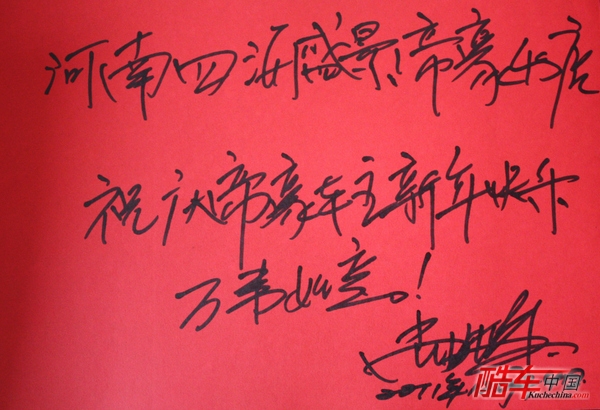 河南四海盛景帝豪4S店
祝广大帝豪车主新年快乐
万事如意!
2011年
酷车中国
Kuchechina.com